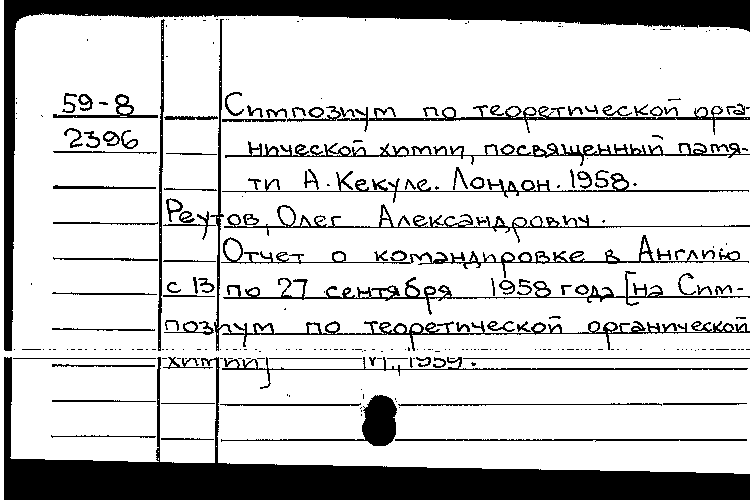 59-8 Симпозиум по теоретической орга-
2396 нической химии, посвященный памя-
ти А. Кекуле. Лондон. 1958.
Реутов, Олег Александрович.
Отчет о командировке в Англию
с 13 по 27 сентября 1958 года [на Сим-
позиум по теоретической органической
химии]. М., 1959.